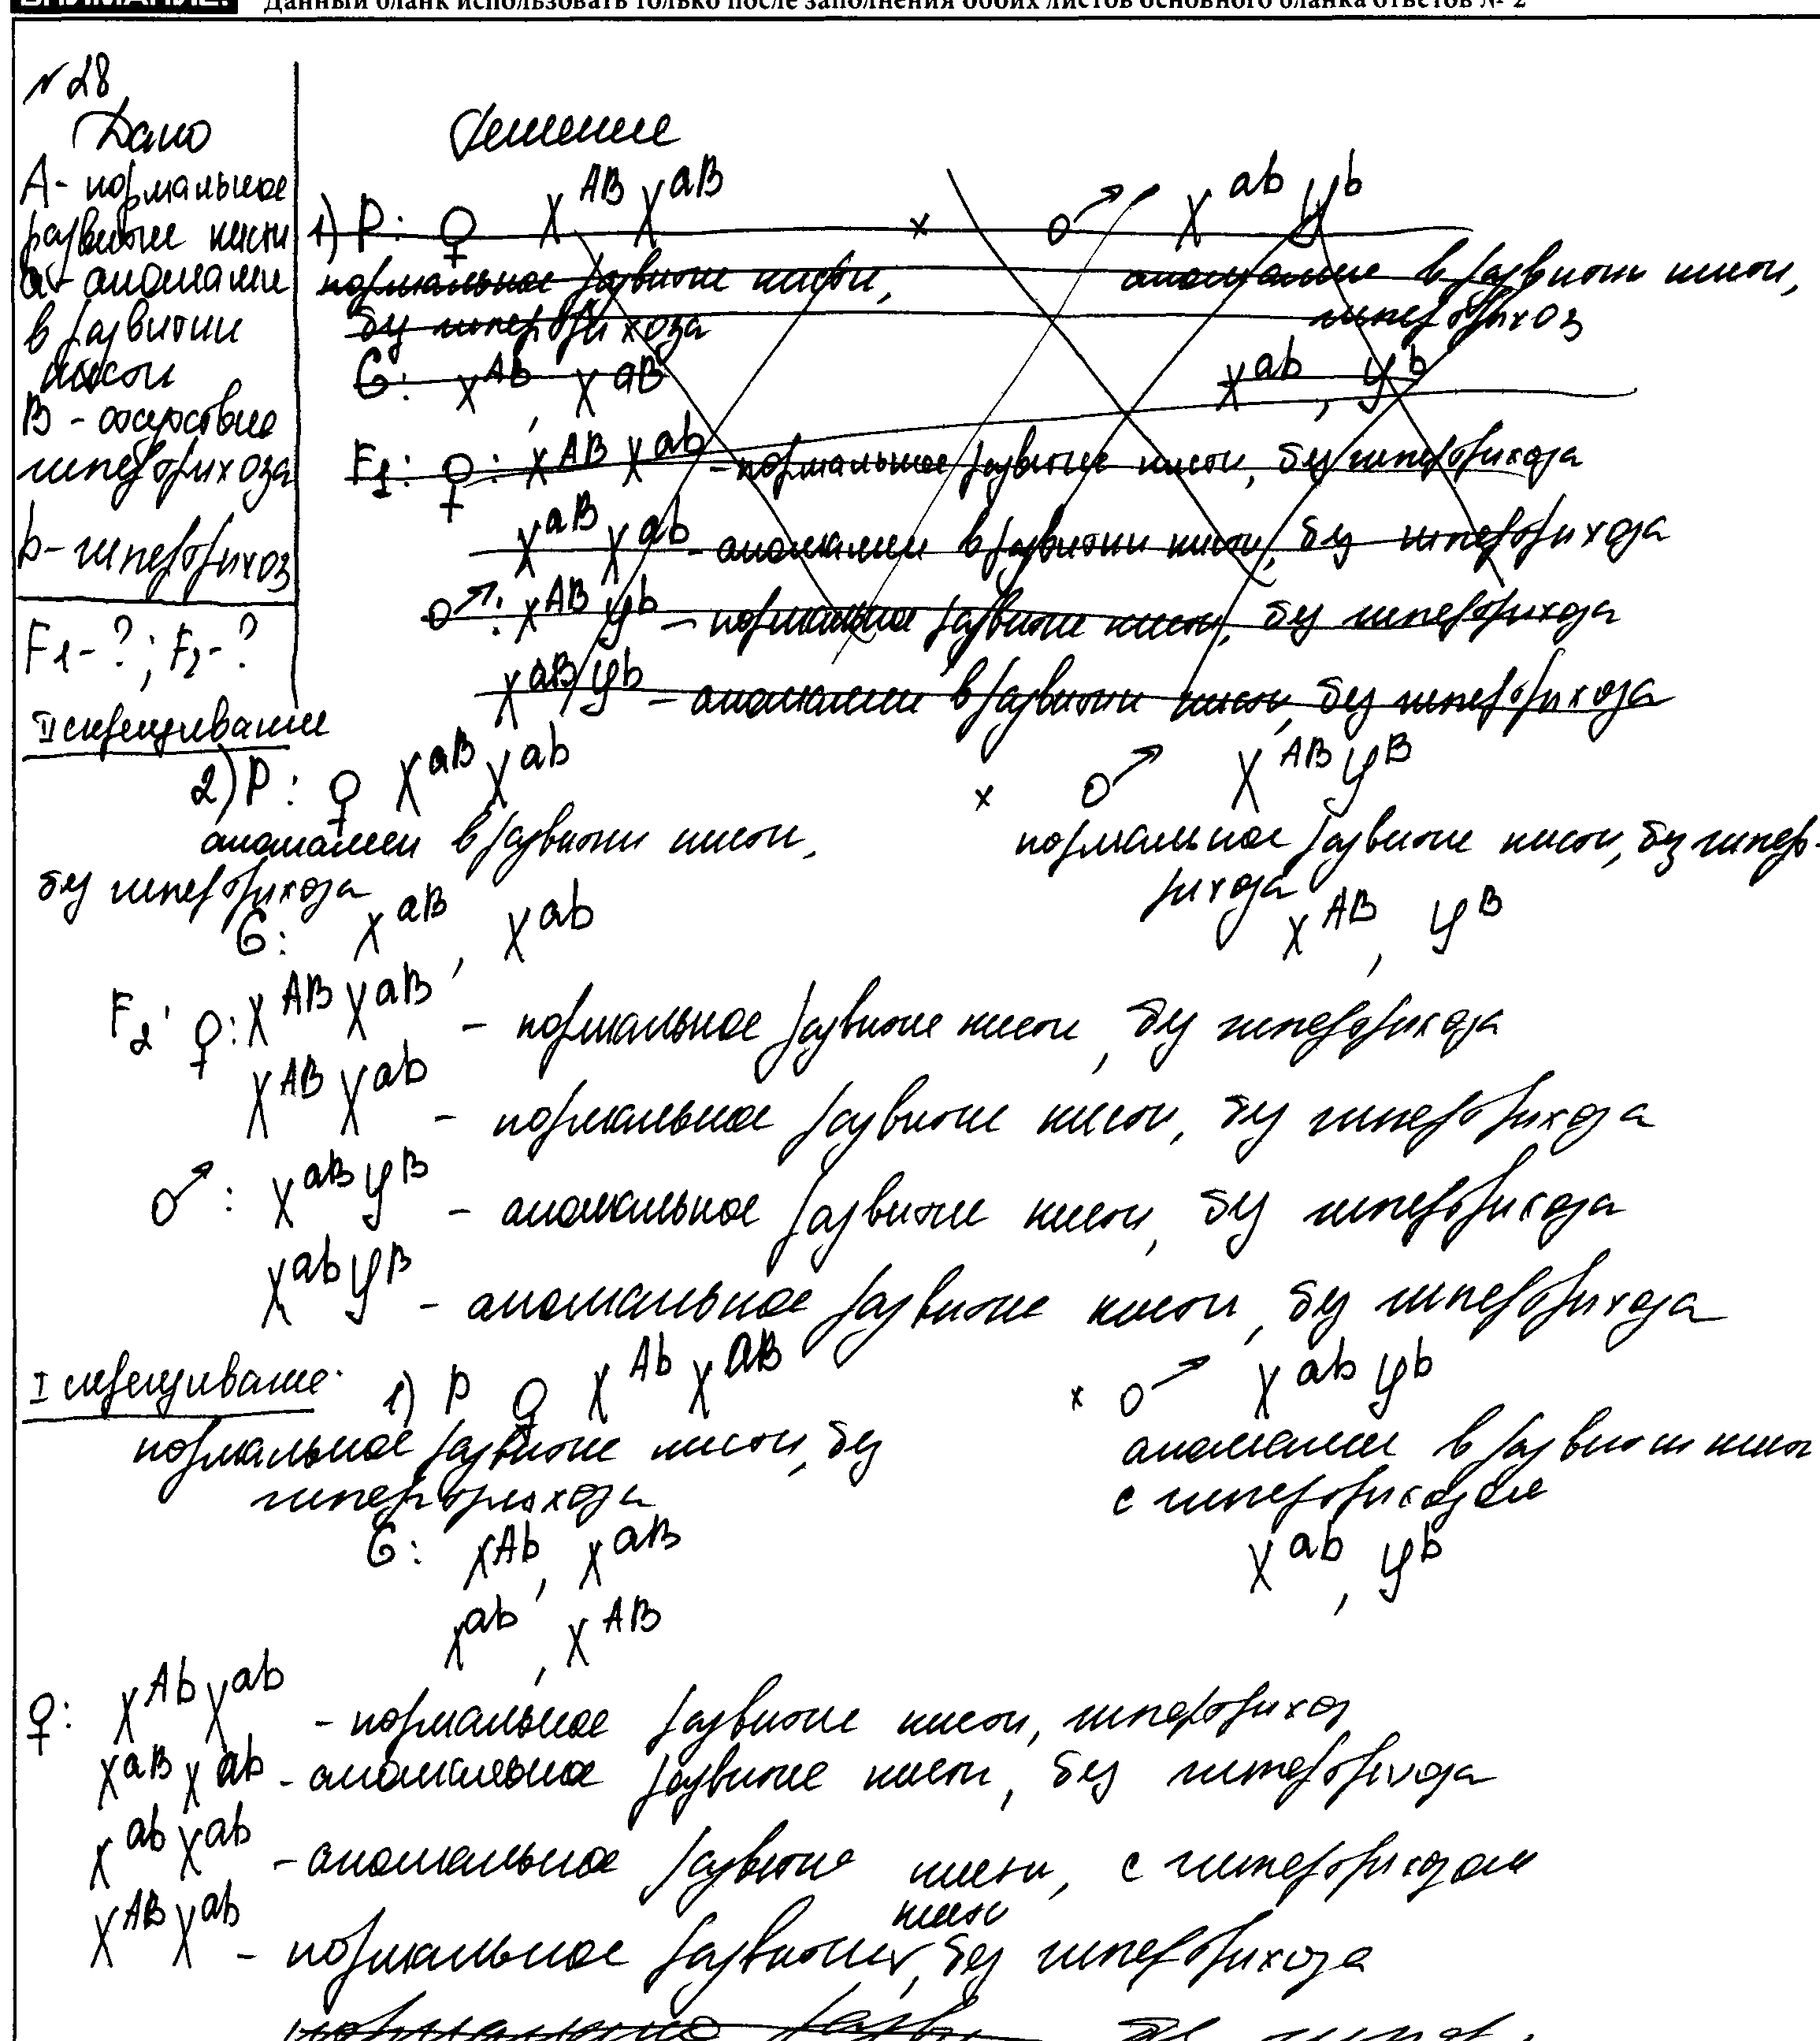 ВНИМАНИЕ! Данный бланк использовать только после заполнения обоих листов основного бланка ответов № 2
№28
Дано
Решение
A - нормальное
развитие кисти
a - аномалии
в развитии
кисти
B - отсутствие
гипертрихоза
b - гипертрихоз
F1-?; F2-?
1) P: ♀ X^AB X^aB x ♂ X^ab Y^b
нормальное развитие кисти, аномалие в развитии кисти,
без гипертрихоза гипертрихоз
G: X^Ab, X^aB X^ab, Y^b
F1: ♀: X^AB X^ab - нормальное развитие кисти, без гипертрихоза
X^aB X^ab - аномалии в развитии кисти, без гипертрихоза
♂: X^AB Y^b - нормальное развитие кисти, без гипертрихоза
X^aB Y^b - аномалии в развитии кисти, без гипертрихоза
II скрещивание
2) P: ♀ X^aB X^ab x ♂ X^AB Y^B
аномалии в развитии кисти, нормальное развитие кисти, без гиперт-
без гипертрихоза рихоза
G: X^aB, X^ab X^AB, Y^B
F2: ♀: X^AB X^aB - нормальное развитие кисти, без гипертрихоза
X^AB X^ab - нормальное развитие кисти, без гипертрихоза
♂: X^aB Y^B - аномальное развитие кисти, без гипертрихоза
X^ab Y^B - аномальное развитие кисти, без гипертрихоза
I скрещивание.
1) P ♀ X^Ab X^aB x ♂ X^ab Y^b
нормальное развитие кисти, без аномалии в развитии кисти
гипертрихоза с гипертрихозом
G: X^Ab, X^aB X^ab, Y^b
X^ab, X^AB
♀: X^Ab X^ab - нормальное развитие кисти, гипертрихоз
X^aB X^ab - аномальное развитие кисти, без гипертрихоза
X^ab X^ab - аномальное развитие кисти, с гипертрихозом
кисти
X^AB X^ab - нормальное развитие, без гипертрихоза